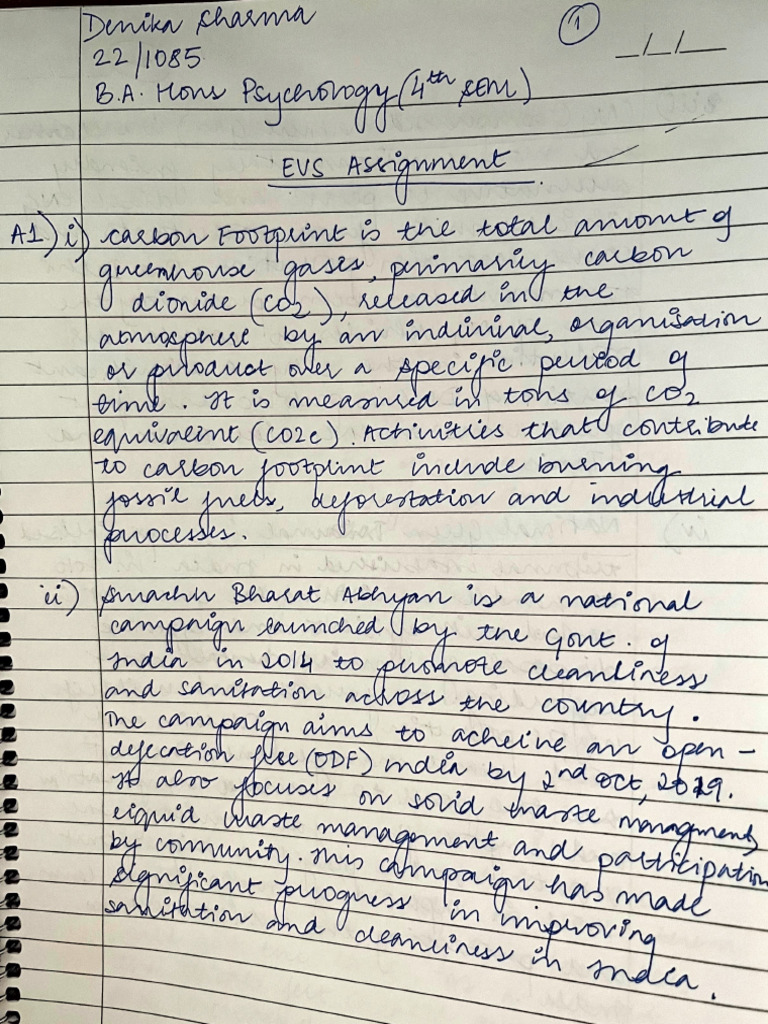 Denika Sharma
①
_/_/_
22/1085
B.A. Hons Psychology (4th sem)
EVS Assignment
A1) i) Carbon Footprint is the total amount of
greenhouse gases, primarily carbon
dioxide (CO2), released in the
atmosphere by an individual, organisation
or product over a specific period of
time. It is measured in tons of CO2
equivalent (CO2e). Activities that contribute
to carbon footprint include burning
fossil fuels, deforestation and industrial
processes.
ii) Swachh Bharat Abhyan is a national
campaign launched by the Govt. of
India in 2014 to promote cleanliness
and sanitation across the country.
The campaign aims to acheive an open-
defecation free (ODF) India by 2nd Oct, 2019.
It also focuses on solid waste managment,
liquid waste management and participation
by community. This campaign has made
significant progress in improving
sanitation and cleanliness in India.